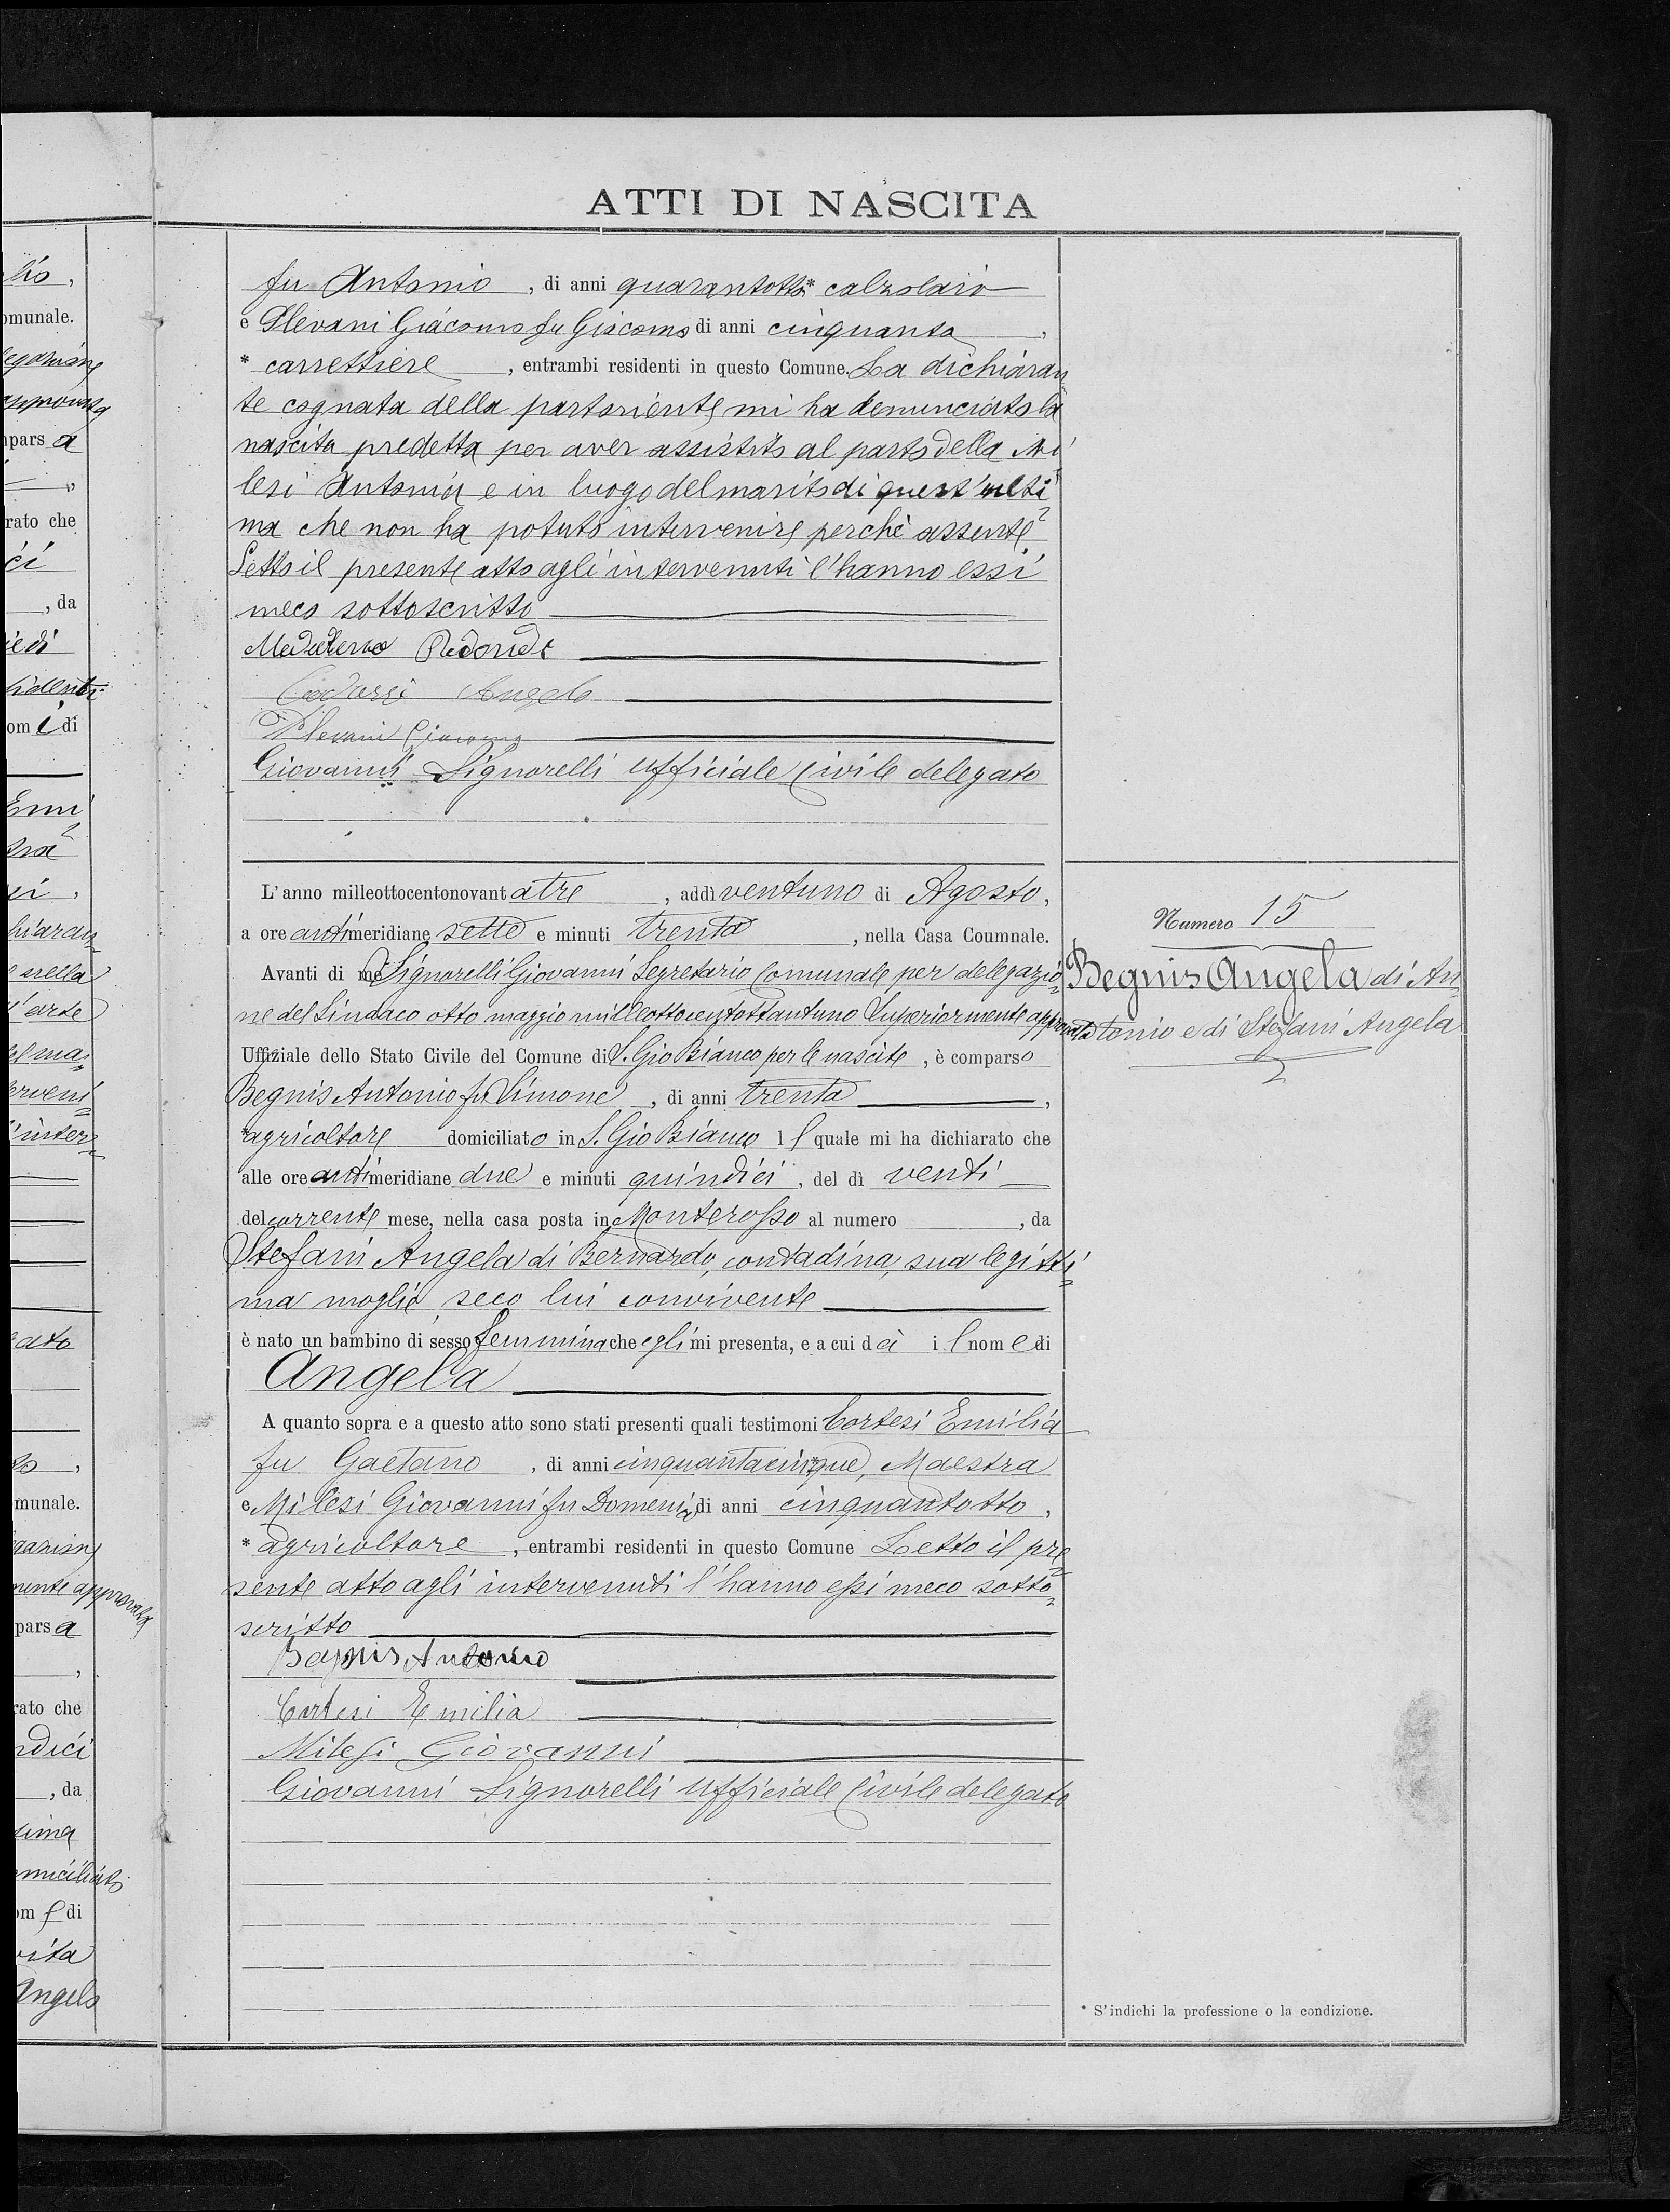 ATTI DI NASCITA
lio,
omunale.
pars a
rato che
ci
, da
iedi
om i di
ato
munale.
pars a
rato che
ndici
, da
om e di
vita
Angelo
fu Antonio, di anni quarantotto * calzolaio
e Plevani Giacomo fu Giacomo di anni cinquanta,
* carrettiere, entrambi residenti in questo Comune. La dichiaran
te cognata della partoriente mi ha denunciato la
nascita predetta per aver assistito al parto della Mi
lesi Antonia e in luogo del marito di quest'ulti
ma che non ha potuto intervenire perchè assente
Letto il presente atto agli intervenuti l'hanno essi
meco sottoscritto
Codassi Angelo
Plevani Giacomo
Giovanni Signorelli ufficiale Civile delegato
L'anno milleottocentonovantatre, addì ventuno di Agosto,
a ore antimeridiane sette e minuti trenta, nella Casa Coumnale.
Avanti di me Signorelli Giovanni Segretario Comunale per delegazio=
ne del Sindaco otto maggio milleottocentottantuno Superiormente approvata
Uffiziale dello Stato Civile del Comune di S. Gio Bianco per le nascite, è comparso
Begnis Antonio fu Simone, di anni trenta,
*agricoltore domiciliato in S. Gio Bianco il quale mi ha dichiarato che
alle ore antimeridiane due e minuti quindici, del dì venti
del corrente mese, nella casa posta in Monterosso al numero , da
Stefani Angela di Bernardo, contadina, sua legitti=
ma moglie seco lui convivente
è nato un bambino di sesso femmina che egli mi presenta, e a cui dà il nome di
Angela
A quanto sopra e a questo atto sono stati presenti quali testimoni Cortesi Emilia
fu Gaetano, di anni cinquantacinque, Maestra
e Milesi Giovanni fu Domenico di anni cinquantotto,
* agricoltore, entrambi residenti in questo Comune Letto il pre
sente atto agli intervenuti l'hanno essi meco sotto=
scritto
Begnis Antonio
Cortesi Emilia
Milesi Giovanni
Giovanni Signorelli Ufficiale Civile delegato
Numero 15
Begnis Angela di An=
tonio e di Stefani Angela
* S'indichi la professione o la condizione.